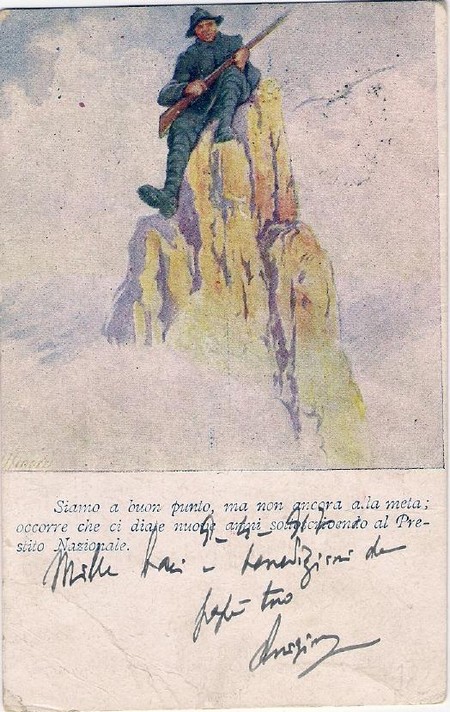 Siamo a buon punto, ma non ancora alla meta;
occorre che ci diate nuove armi sottoscrivendo al Pre-
stito Nazionale.
Mille baci e benedizioni da
papà tuo